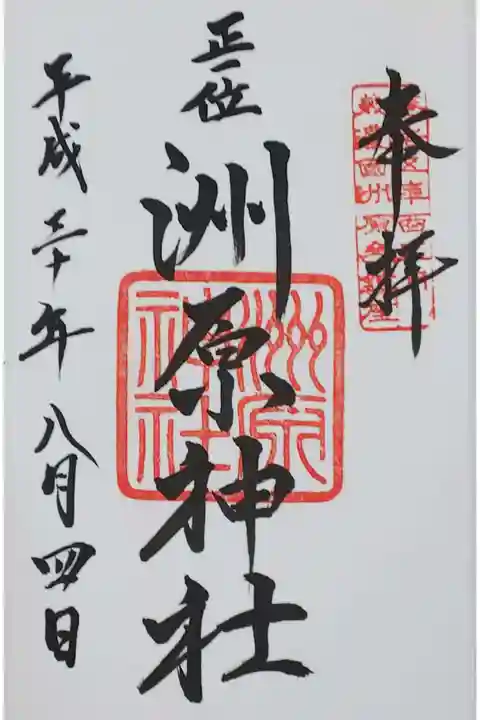 奉拝
正一位
洲原神社
平成三十年八月四日
洲原
神社